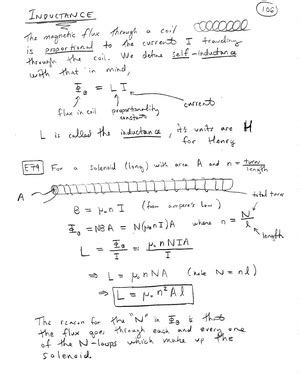 INDUCTANCE
106
The magnetic flux through a coil
is proportional to the current I traveling
through the coil. We define self-inductance
with that in mind,
Φ_B = L I
flux in coil proportionality constant current
L is called the inductance, its units are H
for Henry
E74 For a solenoid (long) with area A and n = turns/length
A
total turns
B = μ₀ n I (from ampere's law)
Φ_B = NBA = N(μ₀nI)A where n = N/l
length
L = Φ_B/I = μ₀nNIA/I
⇒ L = μ₀nNA (note N = nl)
⇒ L = μ₀n²Al
The reason for the "N" in Φ_B is that
the flux goes through each and every one
of the N-loops which make up the
solenoid.